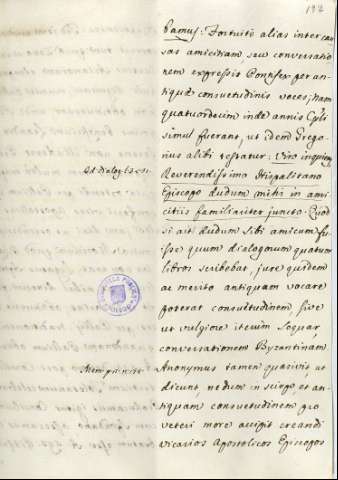 192
bamus: Fortuitò alias inter cau
sas amicitiam seu conversatio
nem expressit Pontifex per an
tiquæ consuetudinis voces; nam
quatuordecim inde annis
simul fuerant, ut idem Grego
rius alibi testatur: Viro inquiens
Reverendissimo Hispalitano
Episcopo dudum mihi in ami
citiis familiariter juncto. Quod
si ait dudum sibi amicum fu
isse quum dialogorum quatuor
libros scribebat, jure quidem
ac merito antiquam vocare
poterat consuetudinem, sive
ut vulgiore iterum loquar
conversationem Byzantinam.
Anonymus tamen quæsivit ut
dicunt, nodum in scirpo et an-
tiquam consuetudinem pro
veteri more accipit creandi
vicarios Apostolicos Episcopos